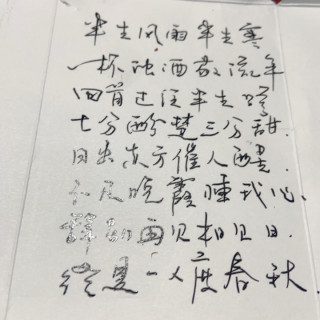 半生风雨半生寒
一杯浊酒敬流年
回首过往半生路
七分酸楚三分甜.
日出东方催人醒
不及晚霞懂我心、
辞别再见相见日.
终是一人度春秋.